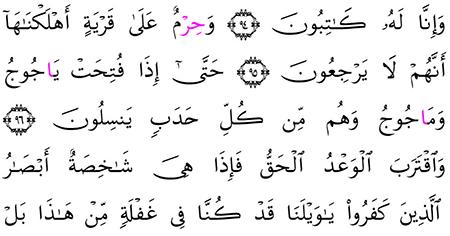 وَإِنَّا لَهُۥ كَٰتِبُونَ ۝٩٤ وَحِرْمٌ عَلَىٰ قَرْيَةٍ أَهْلَكْنَٰهَآ
أَنَّهُمْ لَا يَرْجِعُونَ ۝٩٥ حَتَّىٰٓ إِذَا فُتِحَتْ يَاجُوجُ
وَمَاجُوجُ وَهُم مِّن كُلِّ حَدَبٍ يَنسِلُونَ ۝٩٦
وَٱقْتَرَبَ ٱلْوَعْدُ ٱلْحَقُّ فَإِذَا هِىَ شَٰخِصَةٌ أَبْصَٰرُ
ٱلَّذِينَ كَفَرُوا۟ يَٰوَيْلَنَا قَدْ كُنَّا فِى غَفْلَةٍ مِّنْ هَٰذَا بَلْ